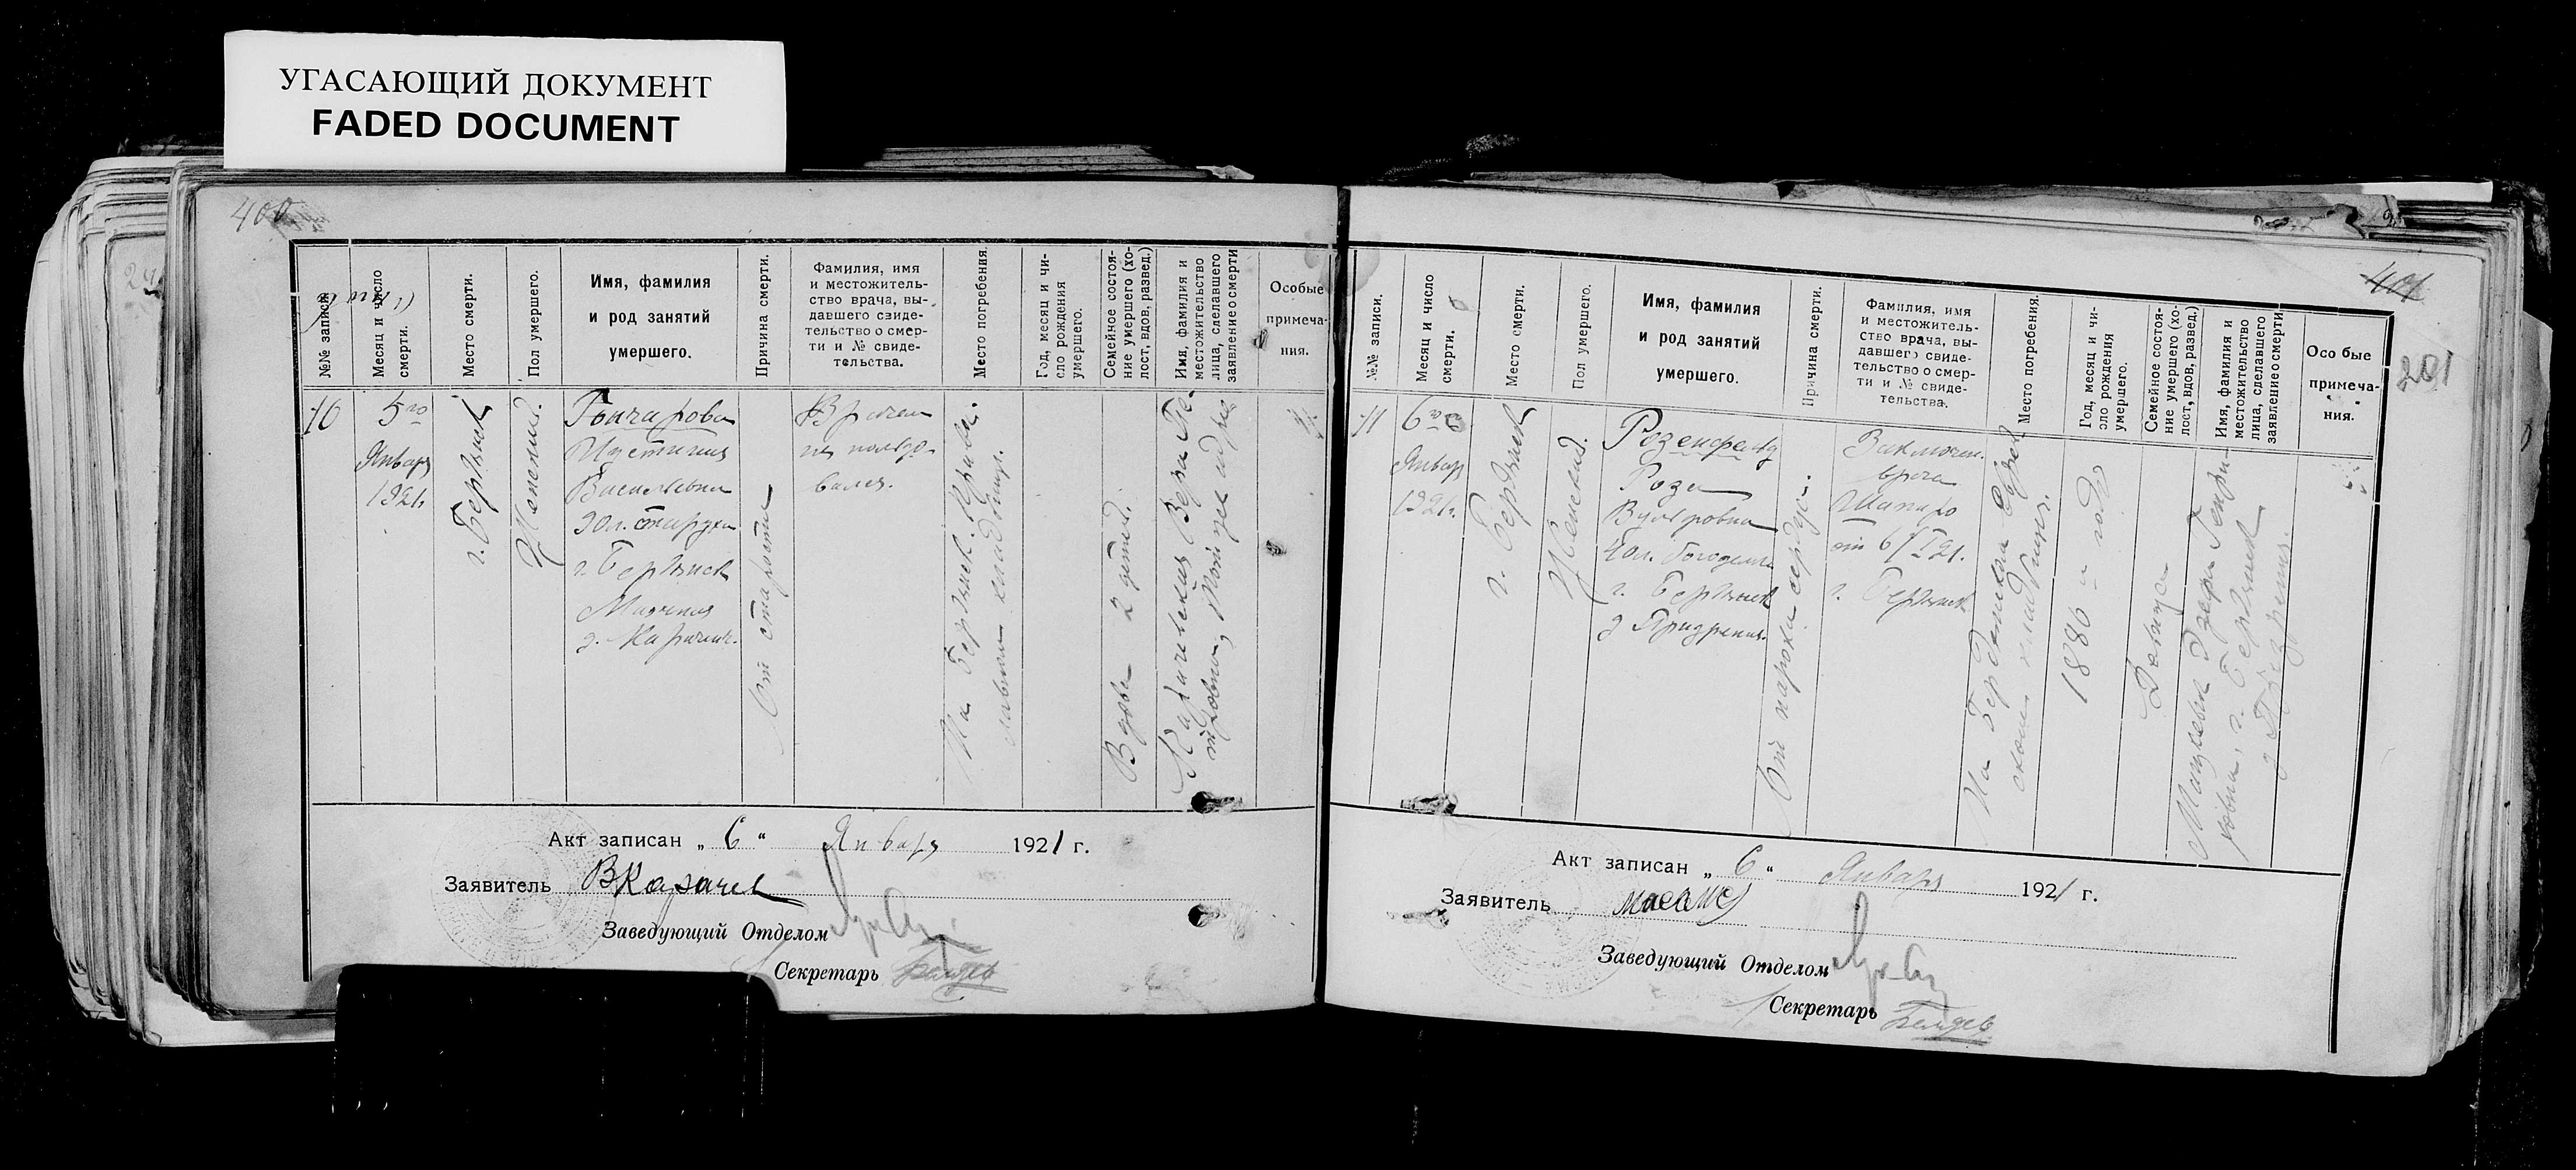 УГАСАЮЩИЙ ДОКУМЕНТ
FADED DOCUMENT
400
№№ записи.
Месяц и число
смерти.
Место смерти.
Пол умершего.
Имя, фамилия
и род занятий
умершего.
Причина смерти.
Фамилия, имя
и местожитель-
ство врача, вы-
давшего свиде-
тельство о смер-
ти и № свиде-
тельства.
Место погребения.
Год, месяц и чи-
сло рождения
умершего.
Семейное состоя-
ние умершего (хо-
лост, вдов, развед.)
Имя, фамилия и
местожительство
лица, сделавшего
заявление о смерти
Особые
примеча-
ния.
10
5го
Января
1921г.
г. Бердянск
Женский.
Гончарова
Иустиния
Васильевна
90л. старуха
г. Бердянск
От старости
Врачем
не пользо-
валась.
На Бердянск. Право-
славном кладбище.
Вдова 2 детей.
Акт записан „ 6 “ Января 1921 г.
Заявитель
Заведующий Отделом
Секретарь
401
201
№№ записи.
Месяц и число
смерти.
Место смерти.
Пол умершего.
Имя, фамилия
и род занятий
умершего.
Причина смерти.
Фамилия, имя
и местожитель-
ство врача, вы-
давшего свиде-
тельство о смер-
ти и № свиде-
тельства.
Место погребения.
Год, месяц и чи-
сло рождения
умершего.
Семейное состоя-
ние умершего (хо-
лост, вдов, развед.)
Имя, фамилия и
местожительство
лица, сделавшего
заявление о смерти.
Особые
примеча-
ния.
11
6го
Января
1921г.
г. Бердянск
Женский.
Розенфельд
Роза
Вульфовна
40л.
г. Бердянск
д. Призрения.
От порока сердца.
Заключен.
врача
Шапиро
от 6/I 21г.
г. Бердянск
На Бердянском Еврей-
ском кладбище.
1880 г. году
Девица
г. Бердянск
д. Призрения.
Акт записан „ 6 “ Января 1921 г.
Заявитель
Заведующий Отделом
Секретарь